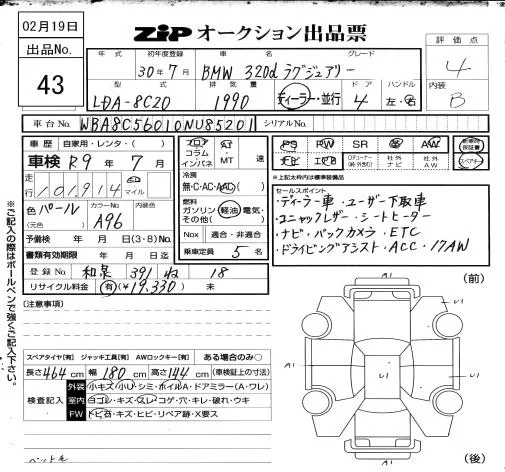 02月19日
ZIP オークション出品票
出品No.
43
評価点
4
内装
B
年式 初年度登録 車名 グレード
30年7月 BMW 320d ラグジュアリー
型式 排気量 ドア ハンドル
LDA-8C20 1990 ディーラー・並行 4 左・右
車台No. WBA8C56010NU85201 シリアルNo.
車歴 自家用・レンタ・( )
車検 R9年7月
走行 101,914 km マイル
色 パール
(元色)
カラーNo. A96
内装色
予備検 年 月 日(3・8)No.
書類有効期限 年 月 日迄
登録No. 和泉 391 ね 18
リサイクル料金 有(¥19,330) 未
フロア コラム インパネ
AT・MT 速
冷房
無・C・AC・AAC
燃料
ガソリン・軽油・電気・
その他( )
Nox 適合・非適合
乗車定員 5名
PS PW SR 革 AW 新車時保証書
ナビ エアB 社外ナビ 社外AW スペアキー
※上記太枠内は標準装備品
セールスポイント
・ディーラー車・ユーザー下取車
・ユニャックレザー・シートヒーター
・ナビ・バックカメラ・ETC
・ドライビングアシスト・ACC・17AW
[注意事項]
スペアタイヤ[有] ジャッキ工具[有] AWロックキー[有] ある場合のみ○
長さ464cm 幅180cm 高さ144cm (車検証上の寸法)
検査記入
外装 小キズ・小U・シミ・ボイルA・ドアミラー(A・ワレ)
室内 ヨゴレ・キズ・スレ・コゲ・穴・キレ・破れ・ウキ
FW トビ石・キズ・ヒビ・リペア跡・X要ス
ペット毛
※ご記入の際はボールペンで強くご記入下さい。
(前)
A1
U1
U1
U1
A1
(後)